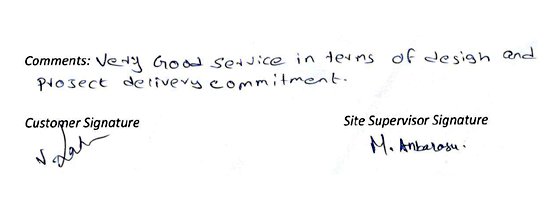 Comments: Very Good service in terms of design and
project delivery commitment.
Customer Signature Site Supervisor Signature
M. Anbarasu.